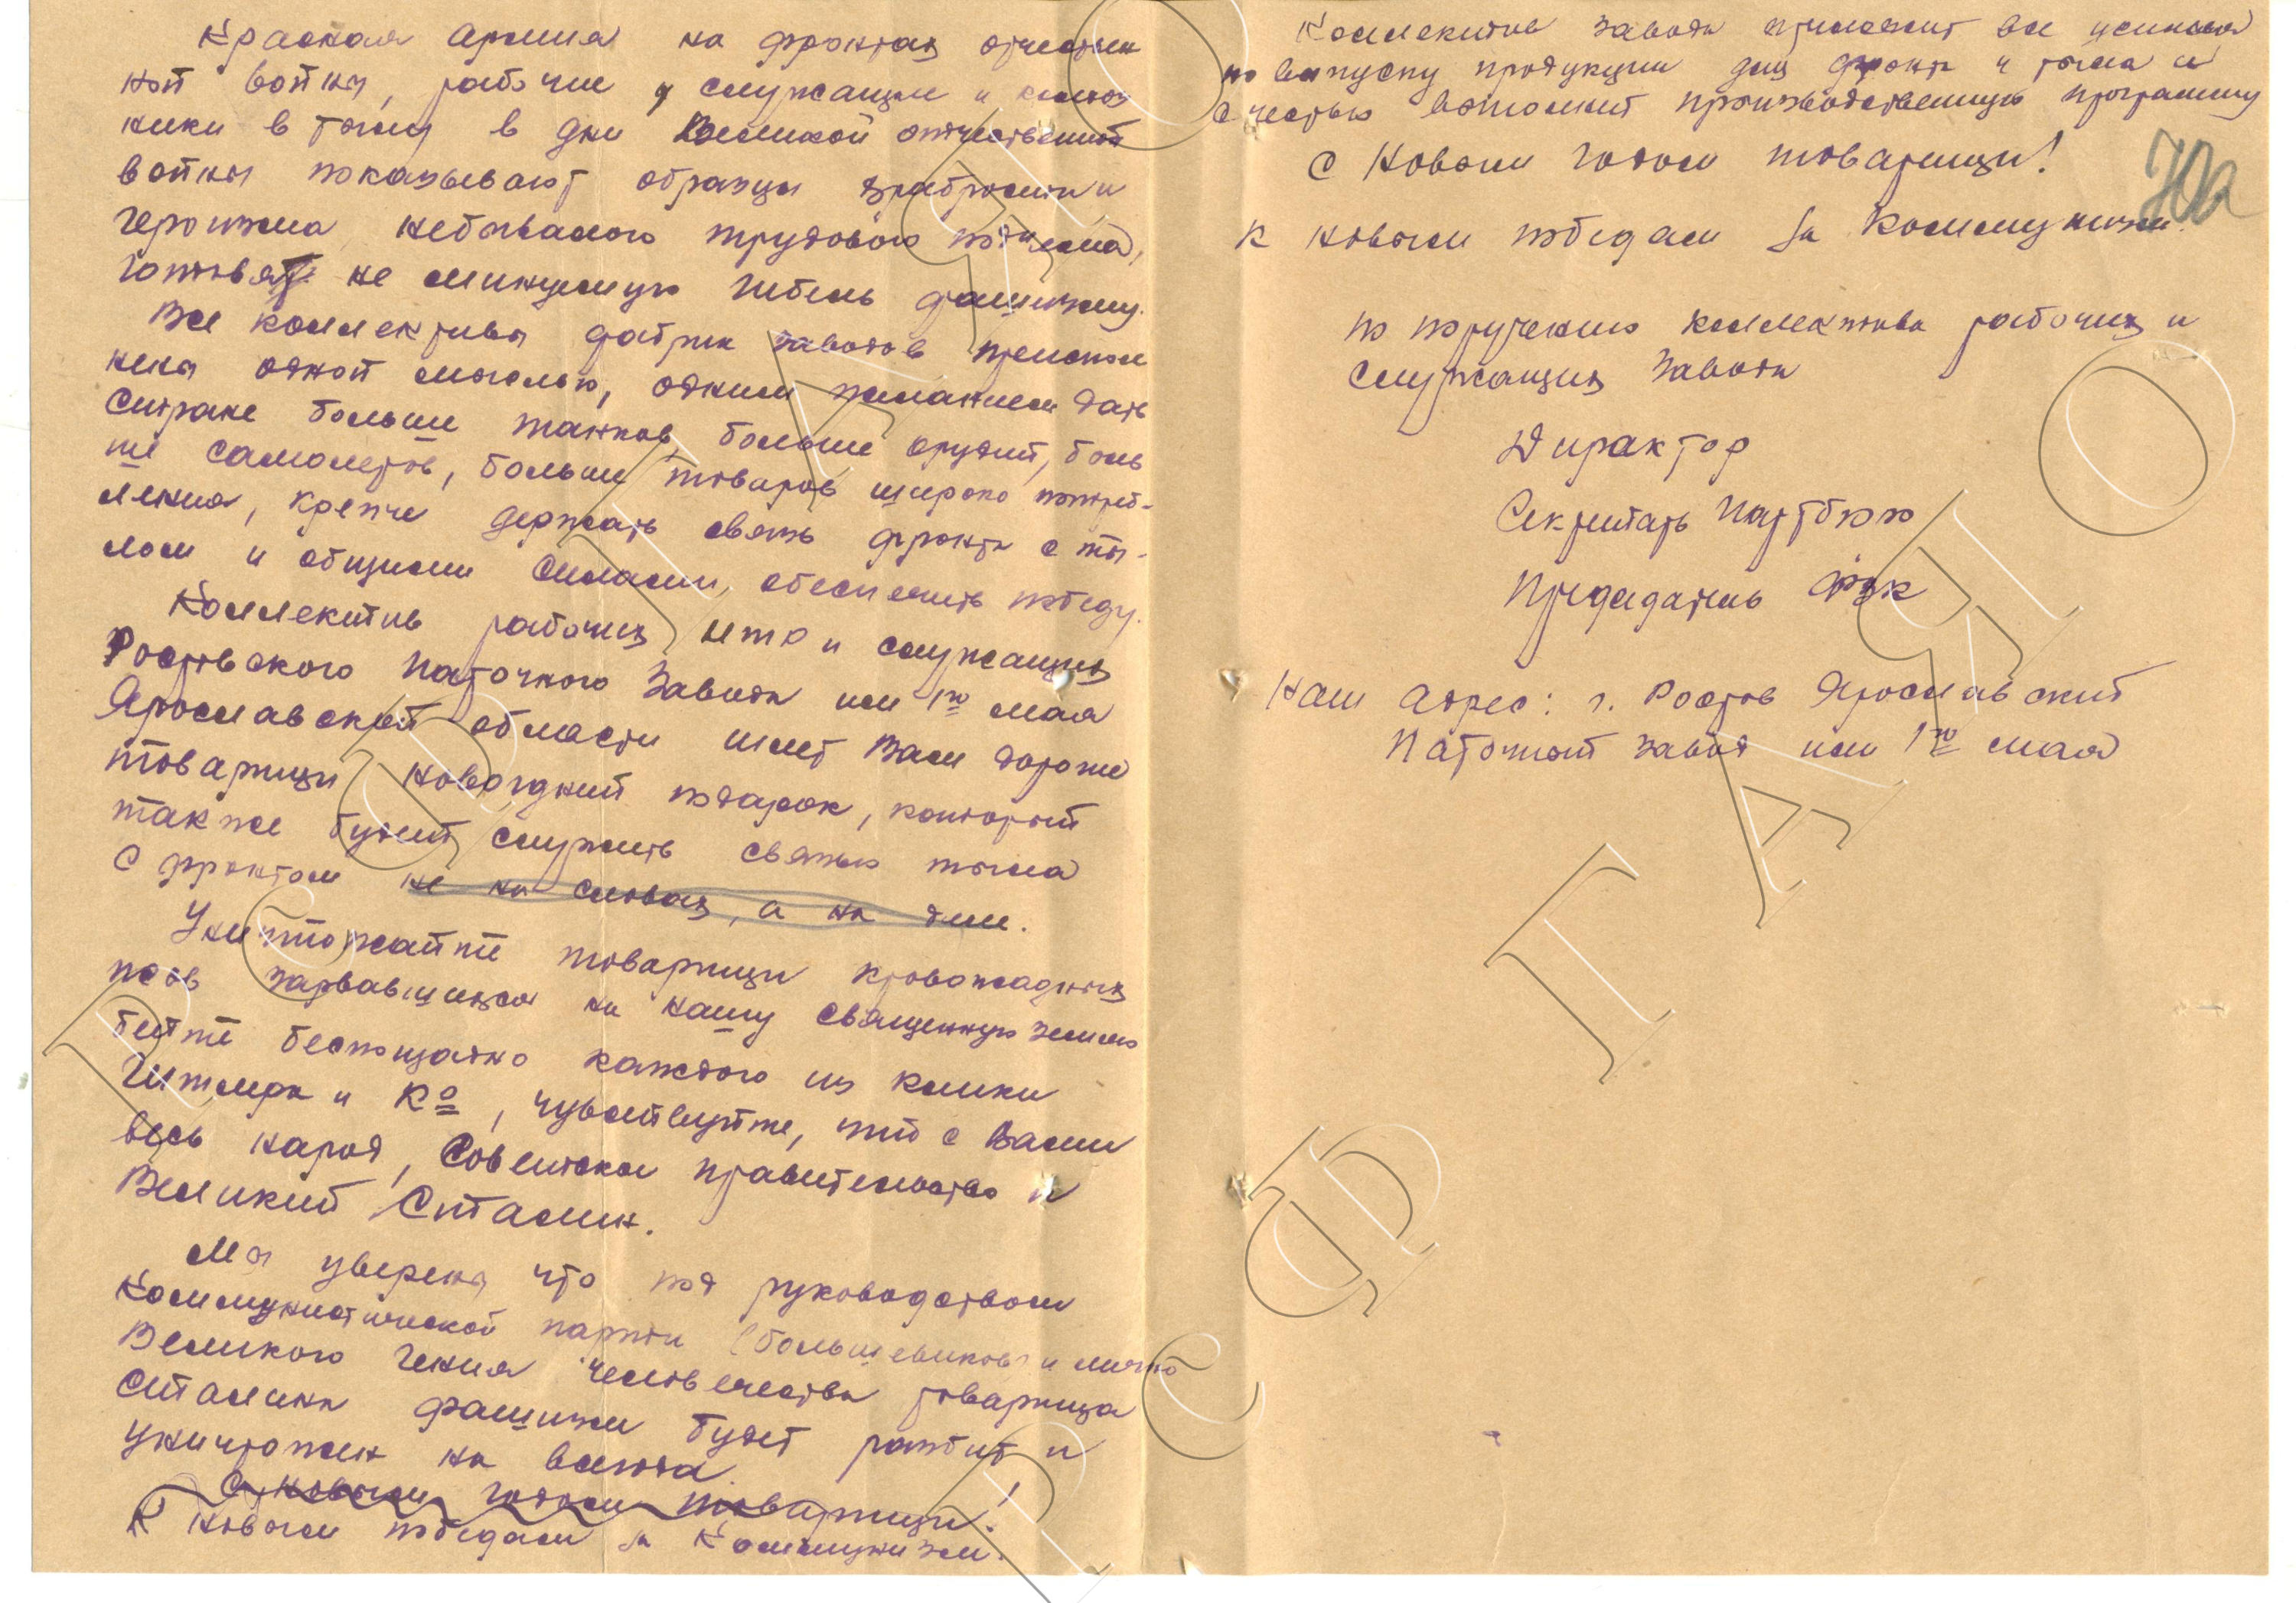 Красная армия на фронтах отчествен
ной войны, рабочие и служащие и колхоз
ники в тылу в дни Великой отечественной
войны показывают образцы храбрости и
героизма, небывалого трудового подъема,
готовят не минуемую гибель фашизму.
Все коллективы фабрик заводов преиспол
нены одной мыслью, одним желанием дать
стране больше танков, больше орудий, боль
ше самолетов, больше товаров широко потреб-
ления, крепче держать связь фронта с ты-
лом и общими силами, обеспечить победу.
Коллектив рабочих ИТР и служащих
Ростовского Паточного Завода им 1го мая
Ярославской области шлет Вам дорогие
товарищи новогдний подарок, который
также будет служить связью тыла
с фронтом не на словах, а на деле.
Уничтожайте товарищи кровожадных
псов зарвавшихся на нашу священную землю
бейте беспощадно каждого из клики
Гитлера и Ко, чувствуйте, что с Вами
весь народ, Советское правительство и
Великий Сталин.
Мы уверены что под руководством
Коммунистической партии (большевиков) и лично
Великого гения человечества товарища
Сталина фашизм будет разбит и
уничтожен на всегда.
С новым годом товарищи!
К новым победам за Коммунизм.
Коллектив завода приложит все усилия
по выпуску продукции для фронта и тыла и
с честью выполнит производственную программу
С Новым годом товарищи!
70а
К новым победам за Коммунизм.
По поручению коллектива рабочих и
служащих Завода
Дирактор
Секретарь Партбюро
Председатель ФЗК
Наш Адрес: г. Ростов Ярославский
Паточный завод им 1го мая
РОССИЯ
ГАЯО
РСФ ГАЯО